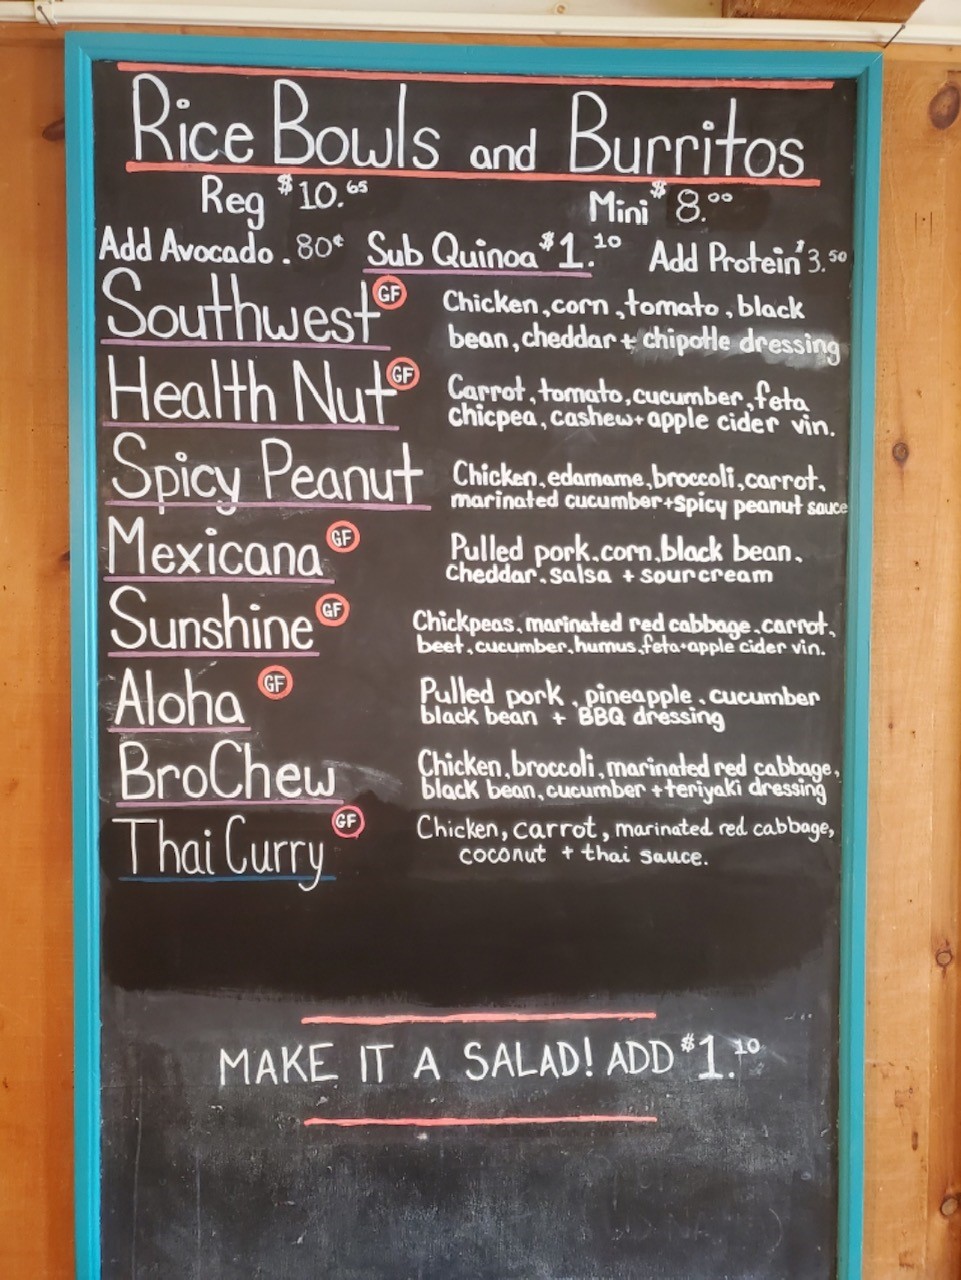 Rice Bowls and Burritos
Reg $10.65 Mini $8.00
Add Avocado .80¢ Sub Quinoa $1.10 Add Protein $3.50
Southwest GF Chicken, corn, tomato, black
bean, cheddar + chipotle dressing
Health Nut GF Carrot, tomato, cucumber, feta
chicpea, cashew + apple cider vin.
Spicy Peanut Chicken, edamame, broccoli, carrot,
marinated cucumber + spicy peanut sauce
Mexicana GF Pulled pork, corn, black bean,
cheddar, salsa + sour cream
Sunshine GF Chickpeas, marinated red cabbage, carrot,
beet, cucumber, humus, feta + apple cider vin.
Aloha GF Pulled pork, pineapple, cucumber
black bean + BBQ dressing
BroChew Chicken, broccoli, marinated red cabbage,
black bean, cucumber + teriyaki dressing
Thai Curry GF Chicken, carrot, marinated red cabbage,
coconut + thai sauce.
MAKE IT A SALAD! ADD $1.10